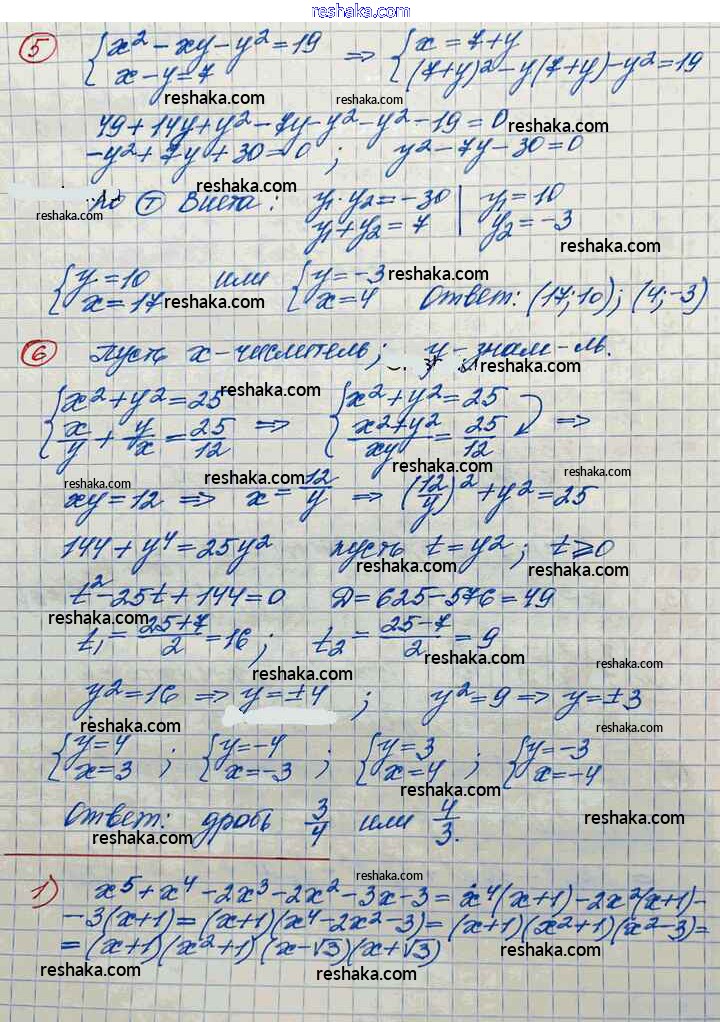 reshaka.com
5 { x² - xy - y² = 19 ⇒ { x = 7 + y
x - y = 7 (7+y)² - y(7+y) - y² = 19
reshaka.com reshaka.com
49 + 14y + y² - 7y - y² - y² - 19 = 0 reshaka.com
-y² + 7y + 30 = 0 ; y² - 7y - 30 = 0
reshaka.com
По Т Виета : y₁ · y₂ = -30 | y₁ = 10
reshaka.com y₁ + y₂ = 7 | y₂ = -3
reshaka.com
{ y = 10 или { y = -3 reshaka.com
x = 17 reshaka.com x = 4 Ответ: (17; 10); (4; -3)
6 Пусть x - числитель; y - знам-ль.
{ x² + y² = 25 reshaka.com { x² + y² = 25
x/y + y/x = 25/12 ⇒ (x² + y²)/xy = 25/12 ⇒
reshaka.com reshaka.com reshaka.com reshaka.com
xy = 12 ⇒ x = 12/y ⇒ (12/y)² + y² = 25
144 + y⁴ = 25y² пусть t = y² ; t ⩾ 0
reshaka.com reshaka.com reshaka.com
t² - 25t + 144 = 0 D = 625 - 576 = 49
reshaka.com
t₁ = (25+7)/2 = 16 ; t₂ = (25-7)/2 = 9
reshaka.com reshaka.com reshaka.com
y² = 16 ⇒ y = ±4 ; y² = 9 ⇒ y = ±3
reshaka.com reshaka.com
{ y = 4 ; { y = -4 ; { y = 3 ; { y = -3
x = 3 x = -3 x = 4 x = -4
Ответ: дробь 3/4 или 4/3.
reshaka.com reshaka.com reshaka.com
reshaka.com
1) x⁵ + x⁴ - 2x³ - 2x² - 3x - 3 = x⁴(x+1) - 2x²(x+1) -
- 3(x+1) = (x+1)(x⁴ - 2x² - 3) = (x+1)(x²+1)(x²-3) =
= (x+1)(x²+1)(x-√3)(x+√3)
reshaka.com reshaka.com reshaka.com